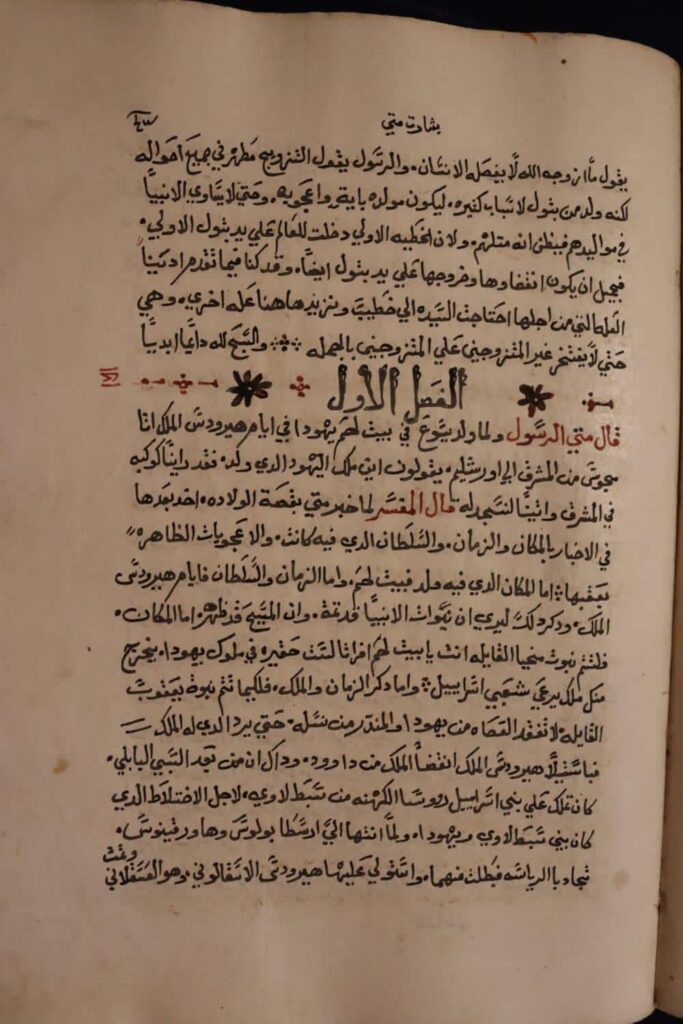 بشارة متي
يقول ما ازوجه الله لا يفصله الانسان. والرسول يقول التزويج مطهر في جميع احواله
لكنه ولد من بتول لاسباب كثيره. ليكون مولده باية واعجوبه. وحتي لا يساوي الانبيا
في مواليدهم فيظن انه مثلهم. ولان الخطيه الاولي دخلت للعالم علي يد بتول الاولي.
فيجب ان يكون انتفاوها وخروجها علي يد بتول ايضا. وقد كنا فيما تقدم ادينا
العله التي من اجلها احتاجت السيده الي خطيب ونزيدها هنا عله اخري. وهي
حتي لا يفتخر غير المتزوجين علي المتزوجين بالجمله والسبح لله دايما ابديا
الفصل الاول
قال متي الرسول ولما ولد يسوع في بيت لحم يهودا في ايام هيرودس الملك اتا
مجوس من المشرق الي اورشليم. يقولون اين ملك اليهود الدي ولد. فقد راينا كوكبه
في المشرق واتينا لنسجد له قال المفسر لما خبر متي بقصة الولاده. اخد بعدها
في الاخبار بالمكان والزمان. والسلطان الدي فيه كانت. والاعجوبات الظاهره
بعقبها اما المكان الدي فيه ولد فبيت لحم. واما الزمان والسلطان فايام هيرودس
الملك. ودكر دلك ليري ان نبوات الانبيا قد تمة. وان المسيح قد ظهر. اما المكان.
فلتتم نبوت ميخيا القايله انت يا بيت لحم افراتا لست حقيره في ملوك يهودا. يخرج
منك ملك يرعي شعبي اسراييل واما دكر الزمان والملك. فلكيما تتم نبوة يعقوب
القايله. لا تفقد القصاه من يهودا والمندر من نسله. حتي يرد الدي له الملك
فباستيلا هيرودس الملك انقضا الملك من داوود. وداك ان من بعد السبي البابلي.
كان تملك علي بني اسراييل روسا الكهنه من سبط لاوي. لاجل الاختلاط الدي
كان بني سبط لاوي ويهودا. ولما انتها الي ارسطابولوس وهاورقينوس.
تجادبا الرياسه فبطلت منهما. واستولي عليها هيرودس الاسقالوني. وهو العسقلاني